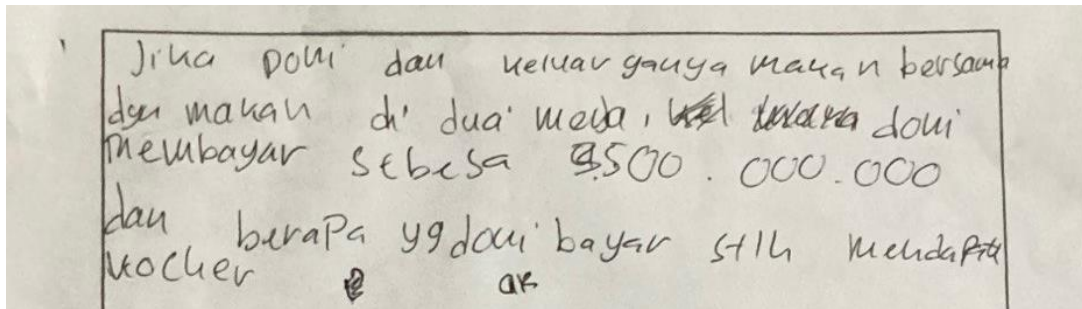 Jika Doni dan keluarganya makan bersama
dgn makan di dua meja, doni
membayar sebesa 500.000.000
dan berapa yg doni bayar stlh mendapat
vocher